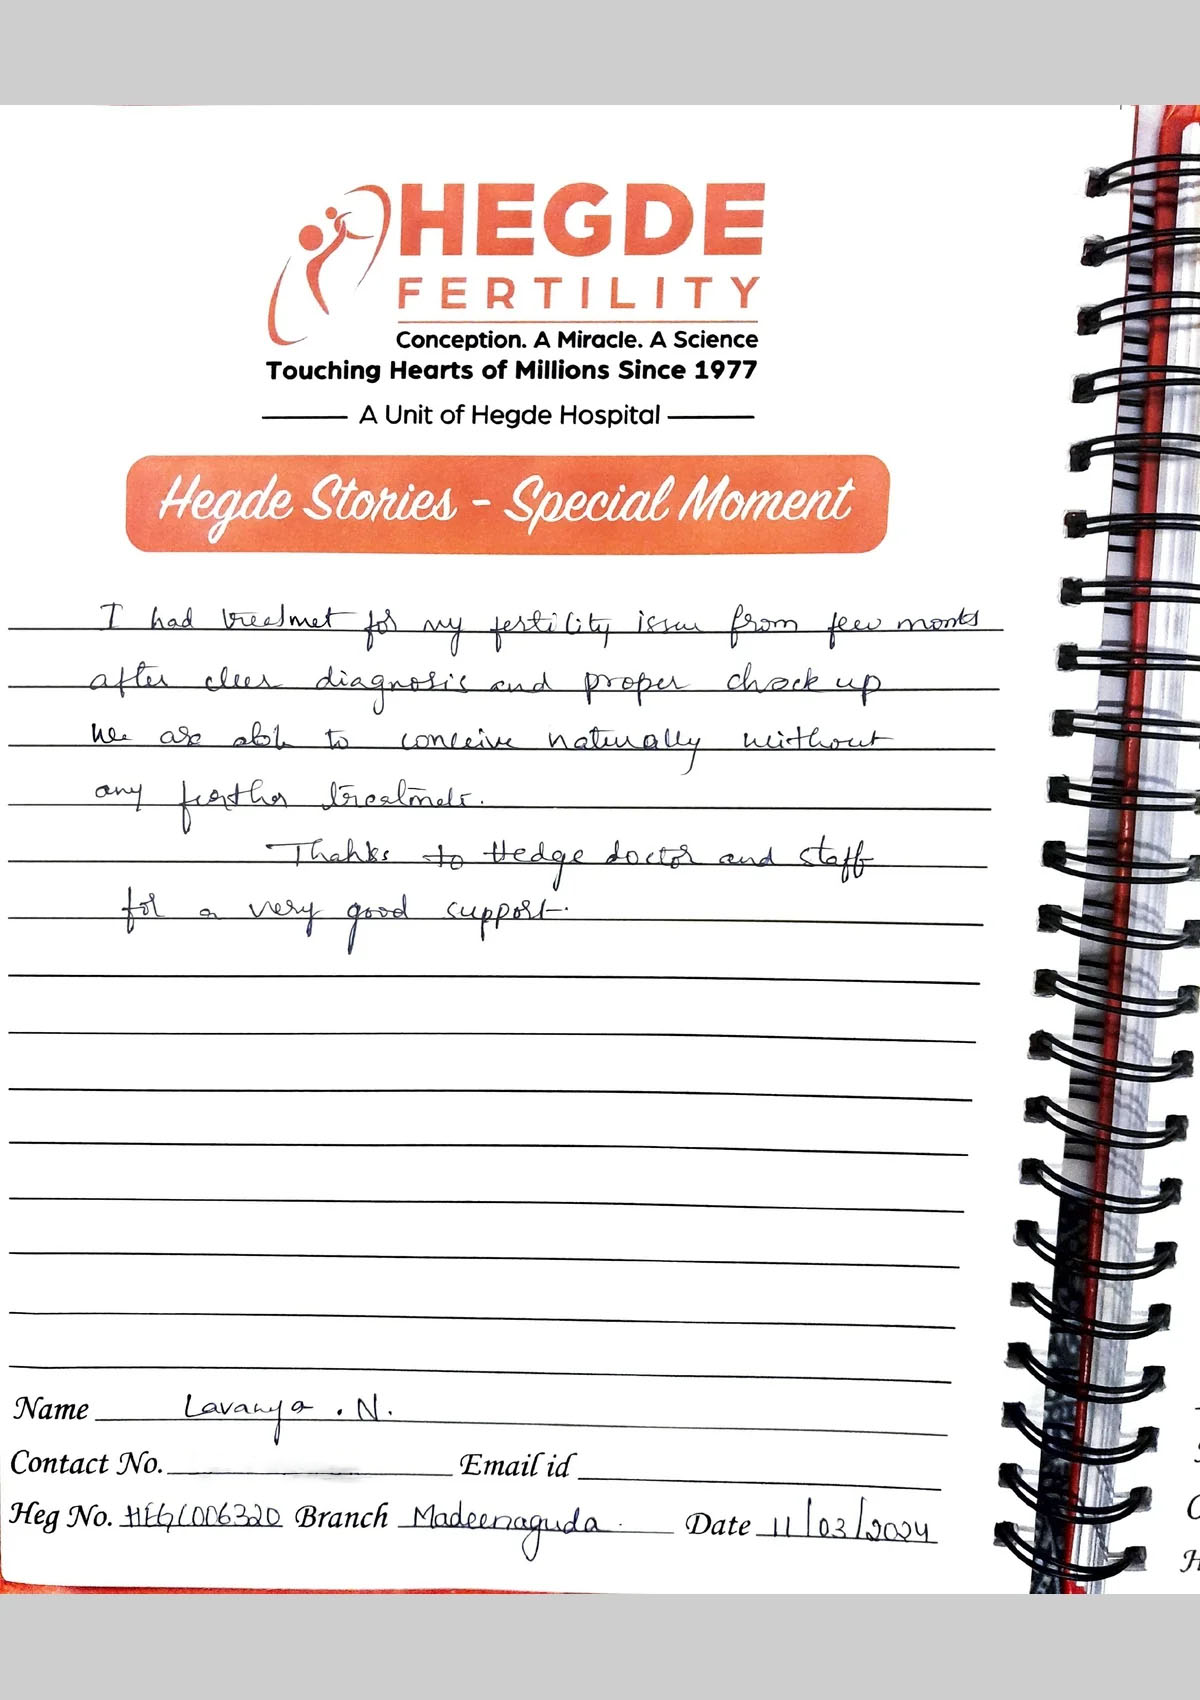 HEGDE
FERTILITY
Conception. A Miracle. A Science
Touching Hearts of Millions Since 1977
A Unit of Hegde Hospital
Hegde Stories - Special Moment
I had treatmet for my fertility issue from few months
after clear diagnosis and proper check up
We are able to conceive naturally without
any further treatments.
Thanks to Hedge doctor and staff
for a very good support.
Name Lavanya . N.
Contact No. Email id
Heg No. HEGC006320 Branch Madeenaguda . Date 11/03/2024